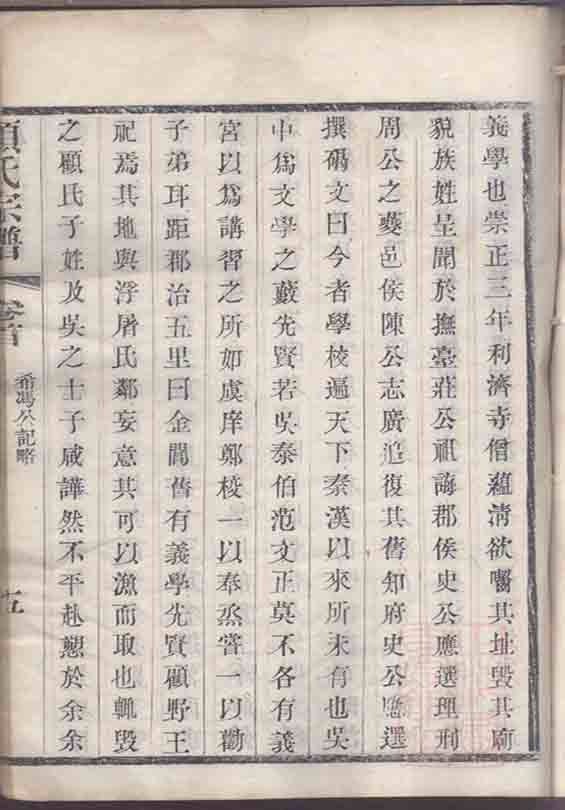 義學也崇正三年利濟寺僧蘊淸欲囑其址毀其廟
貌族姓呈聞於撫臺莊公祖誨郡侯史公應選理刑
周公之夔邑侯陳公志廣追復其舊知府史公應選
撰碑文曰今者學校遍天下秦漢以來所未有也吳
中爲文學之藪先賢若吳泰伯范文正莫不各有義
宮以爲講習之所如虞庠鄭校一以奉烝嘗一以勸
子弟耳距郡治五里曰金閶舊有義學先賢顧野王
祀焉其地與浮屠氏鄰妄意其可以漁而取也輒毀
之顧氏子姓及吳之士子咸譁然不平赴愬於余余
顧氏宗譜
卷首
希馮公記略
五